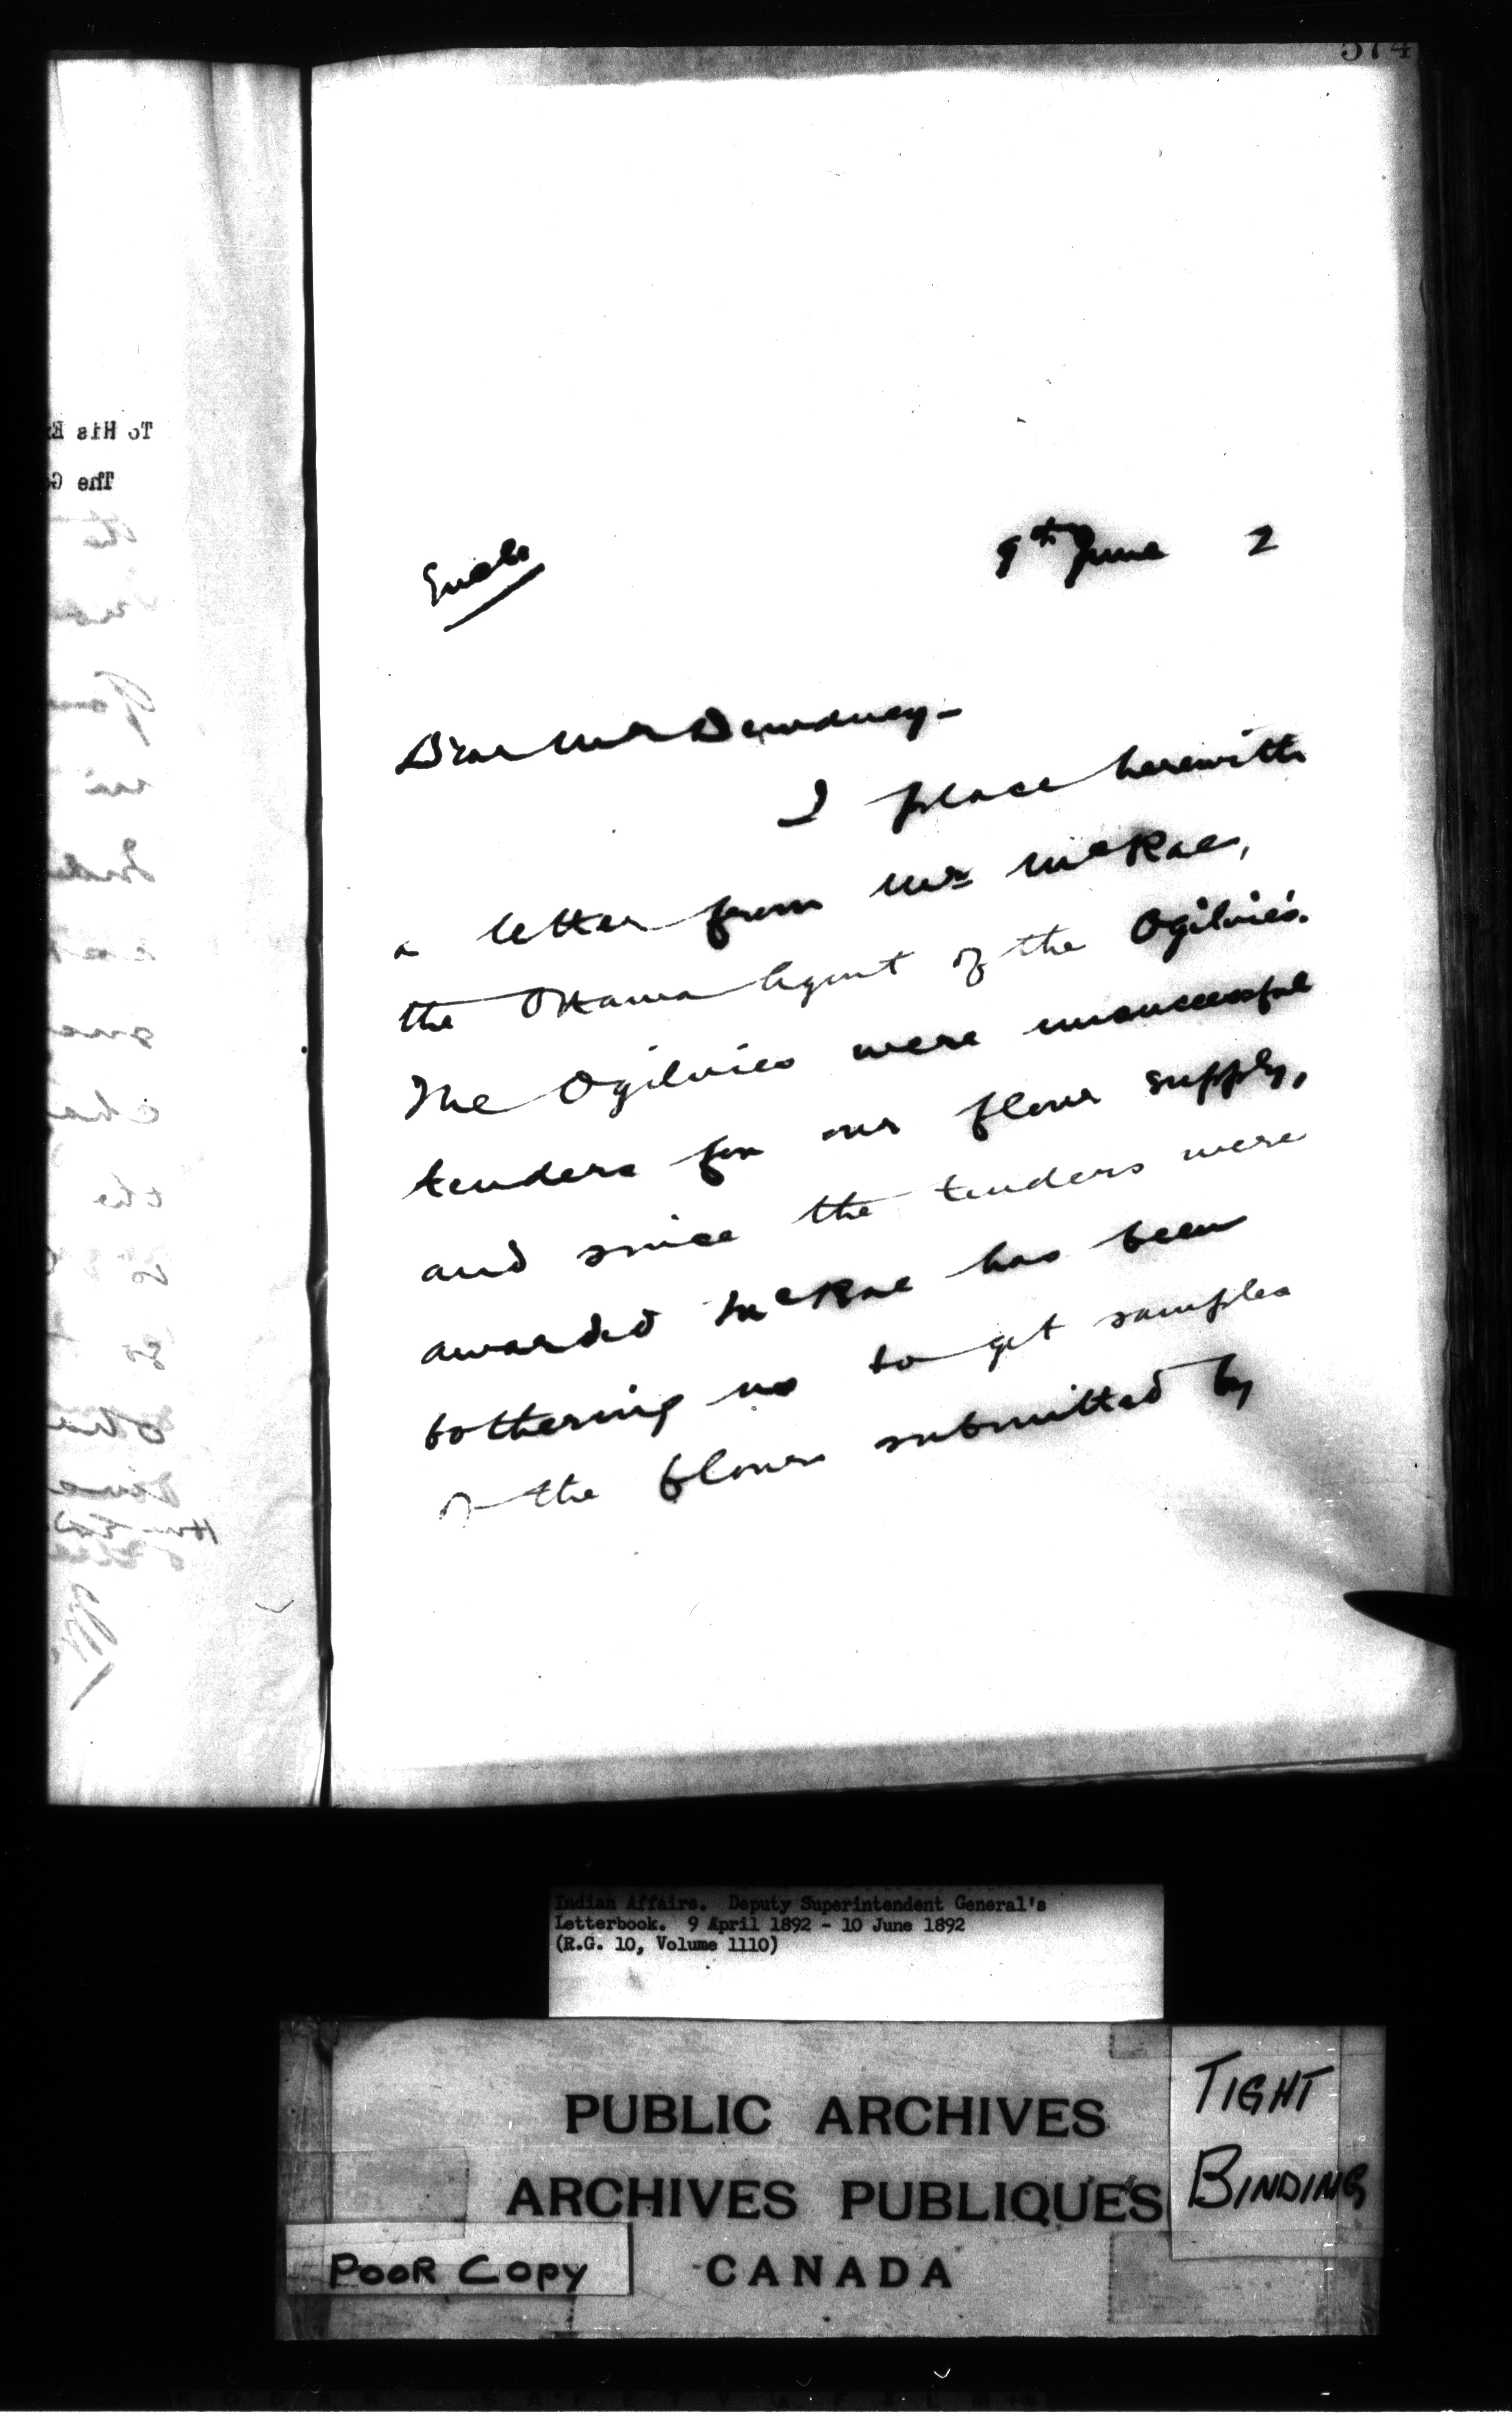 574
9th June 2
Encls
Dear Mr Dewdney-
I place herewith
a letter from Mr McRae,
the Ottawa Agent of the Ogilvies.
The Ogilvies were unsuccessful
tenders for our flour supply,
and since the tenders were
awarded McRae has been
bothering us to get samples
of the flour submitted by
To His E
The G
Indian Affairs. Deputy Superintendent General's
Letterbook. 9 April 1892 - 10 June 1892
(R.G. 10, Volume 1110)
PUBLIC ARCHIVES
ARCHIVES PUBLIQUES
CANADA
TIGHT
BINDING
POOR COPY